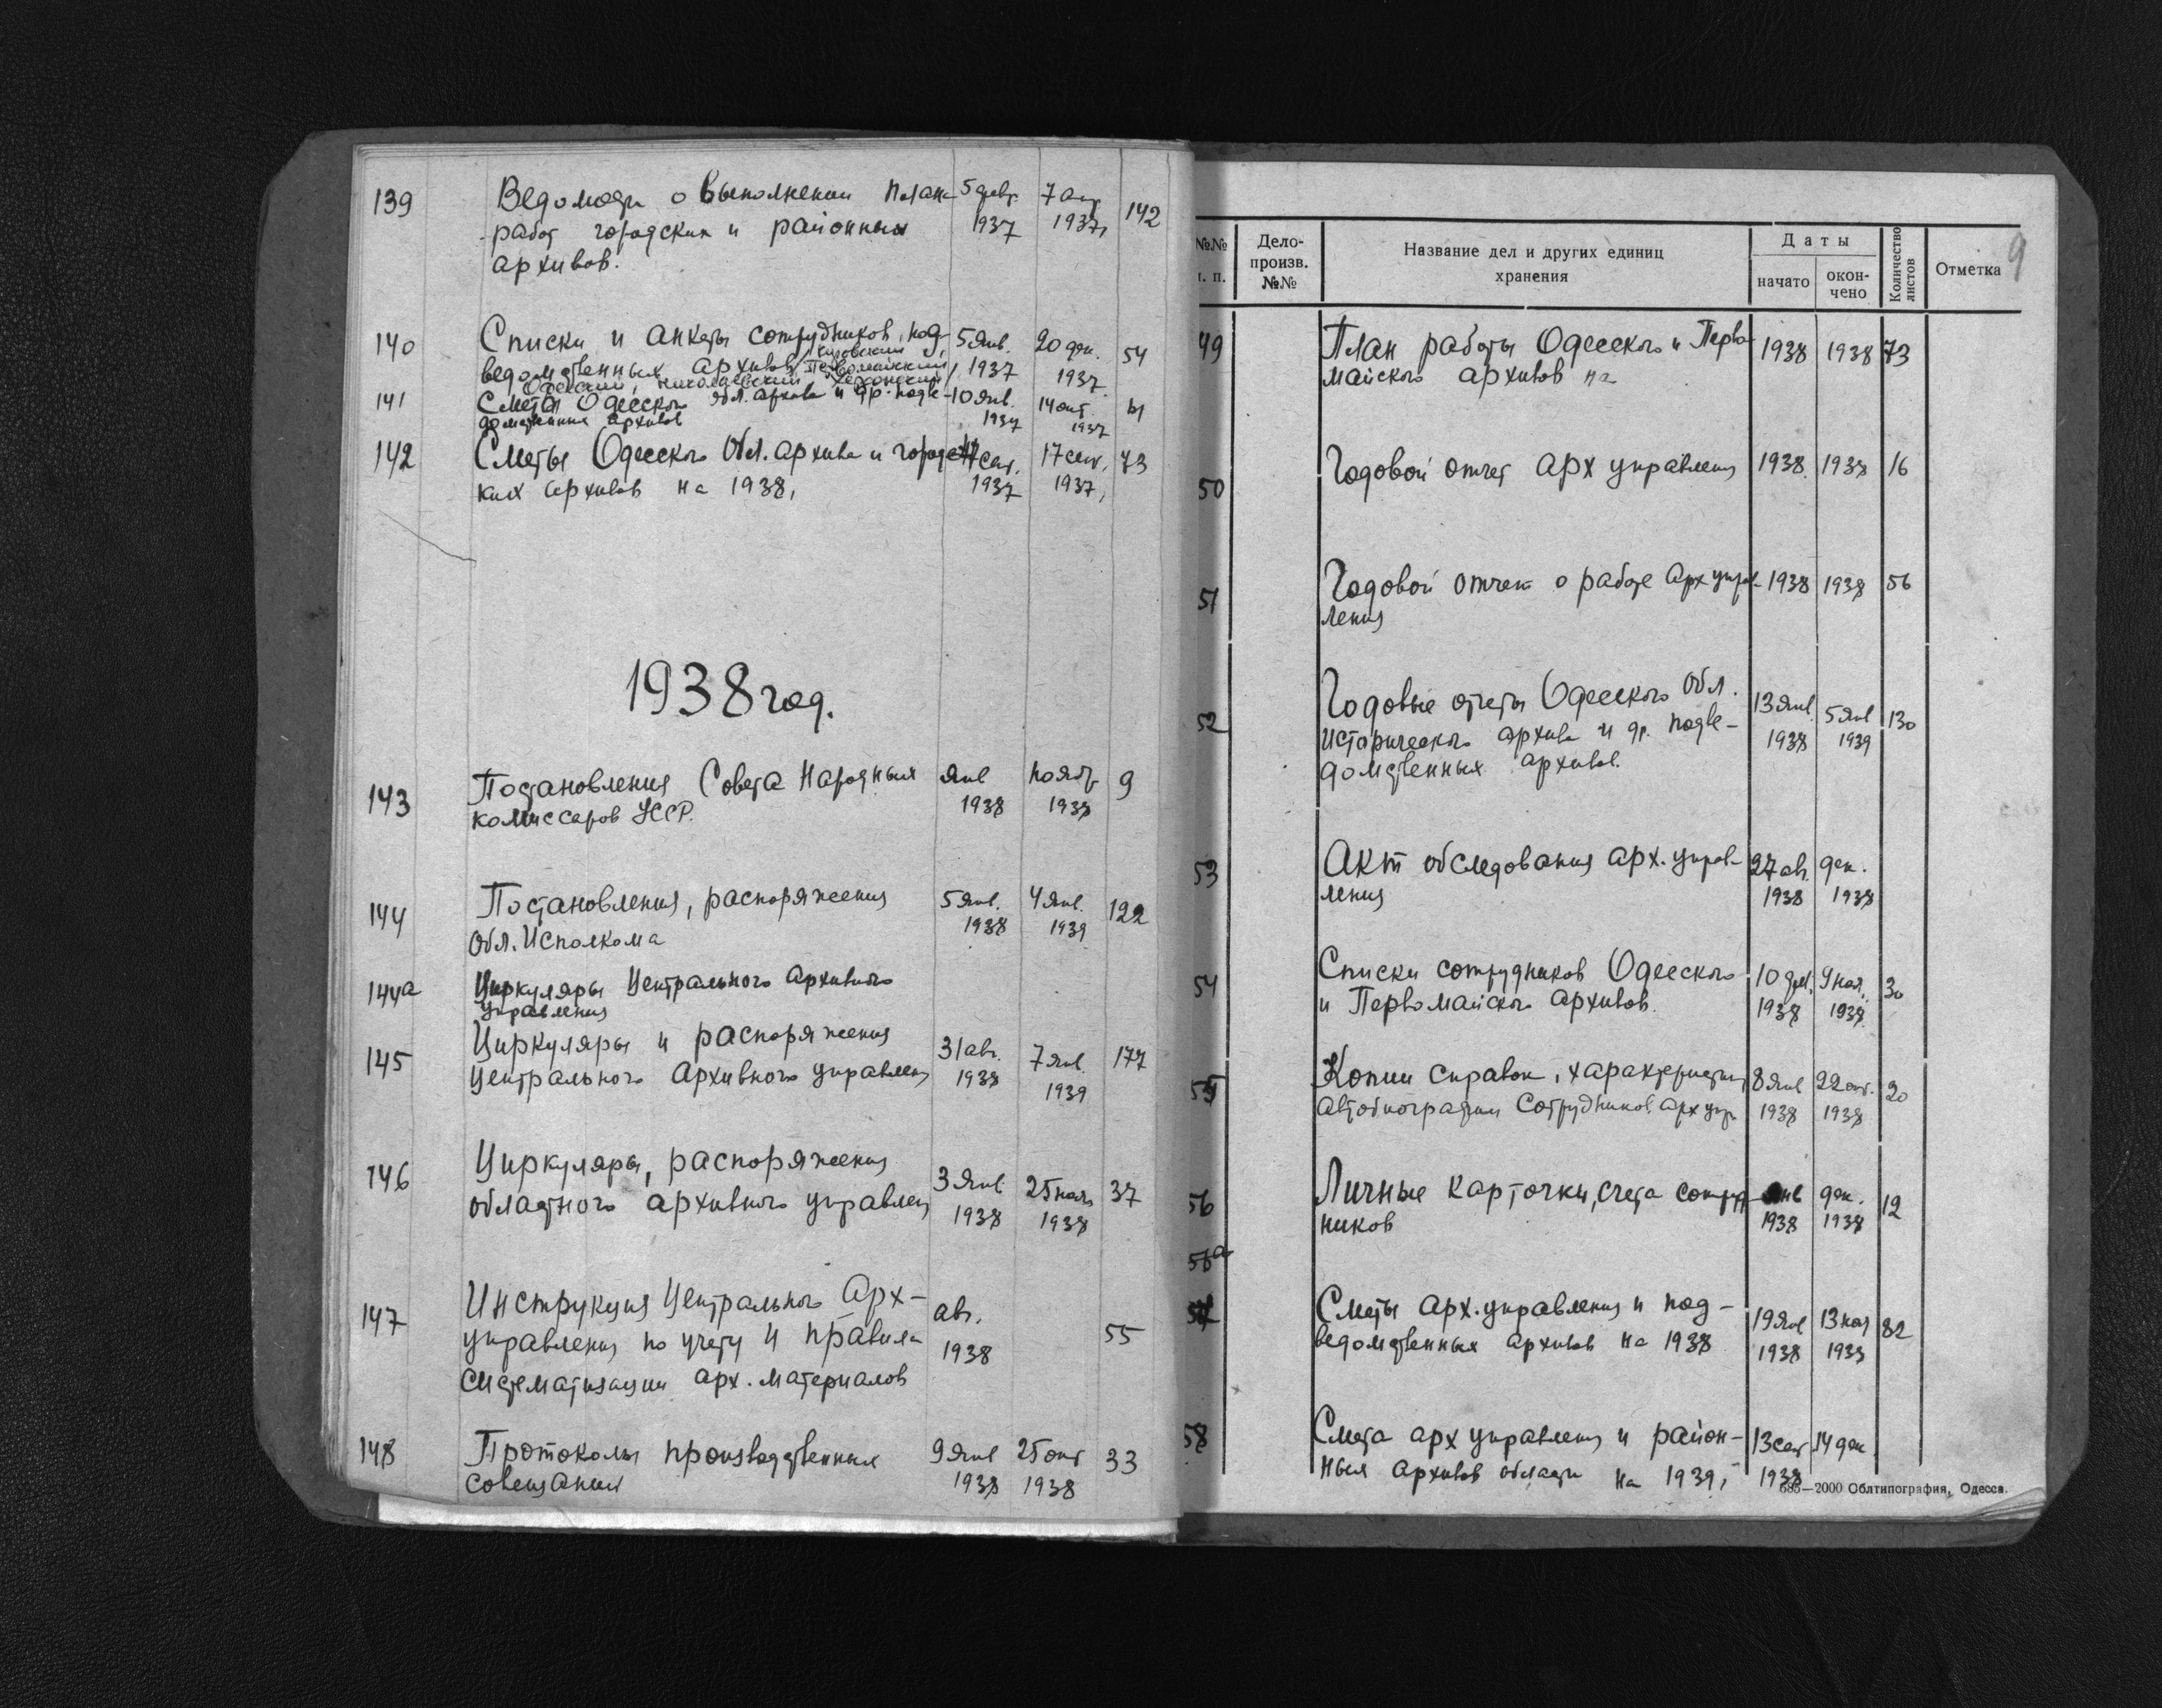 139 Ведомости о выполнении плана 5 февр. 7 авг. 142
работ городских и районных 1937 1937,
архивов.
140 Списки и анкеты сотрудников, под- 5 янв. 20 дек. 54
Кировский,
ведомственных архивов, Первомайский, 1937 1937
Одесский, Николаевский, Херсонский
141 Сметы Одесского обл. архива и др. подве- 10 янв. 14 окт.
домственных архивов 1937 1937
142 Сметы Одесского Обл. архива и городс- сен. 17 сен. 73
ких архивов на 1938, 1937 1937,
1938 год.
143 Постановления Совета Народных янв ноябр 9
комиссаров УССР. 1938 1938
144 Постановления, распоряжения 5 янв. 4 янв. 122
Обл. Исполкома 1938 1939
144а Циркуляры Центрального Архивного
управления
145 Циркуляры и распоряжения 31 авг. 7 янв. 177
Центрального Архивного управлен 1938 1939
146 Циркуляры, распоряжения 3 янв 25 ноя 37
областного архивного управлен 1938 1938
147 Инструкция Центрального Арх- авг. 55
управления по учету и правила 1938
систематизации арх. материалов
148 Протоколы производственных 9 янв 25 окт 33
совещаний 1938 1938
9
№№ п. п. Дело- произв. №№ Название дел и других единиц хранения Даты начато окон- чено Количество листов Отметка
49 План работы Одесского и Перво- 1938 1938 73
майского архивов на
50 Годовой отчет арх управления 1938 1938 16
51 Годовой отчет о работе Арх управ- 1938 1938 56
ления
52 Годовые отчеты Одесского Обл. 13 янв. 5 янв 130
исторического архива и др. подве- 1938 1939
домственных архивов.
53 Акт обследования арх. управ- 27 ав. дек.
ления 1938 1938
54 Списки сотрудников Одесского 10 9 ноя. 30
и Первомайского архивов. 1938 1938
55 Копии справок, характеристик 8 янв 22 окт. 20
автобиографии сотрудников арх упр. 1938 1938
56 Личные карточки, счета сотруд- янв дек. 12
ников 1938 1938
56а
57 Сметы арх. управления и под- 19 янв 13 ноя 82
ведомственных архивов на 1938 1938 1938
58 Смета арх управлен и район- 13 сент 14 дек
ных архивов области на 1939, 1938
585—2000 Облтипография, Одесса.